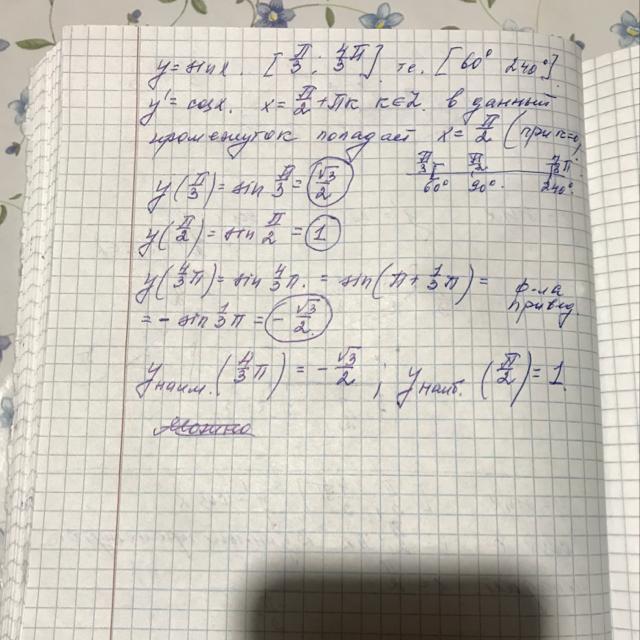 y = sin x. [π/3; 4/3 π] т.е. [60° 240°]
y' = cos x. x = π/2 + πк к∈Z. в данный
промежуток попадает x = π/2 (при к=0)
π/3 π/2 4/3 π
60° 90° 240°
y(π/3) = sin π/3 = √3/2
y(π/2) = sin π/2 = 1
y(4/3 π) = sin 4/3 π. = sin(π + 1/3 π) = ф-ла
= - sin 1/3 π = - √3/2 привед.
y наим. (4/3 π) = - √3/2 ; y наиб. (π/2) = 1.
Можно